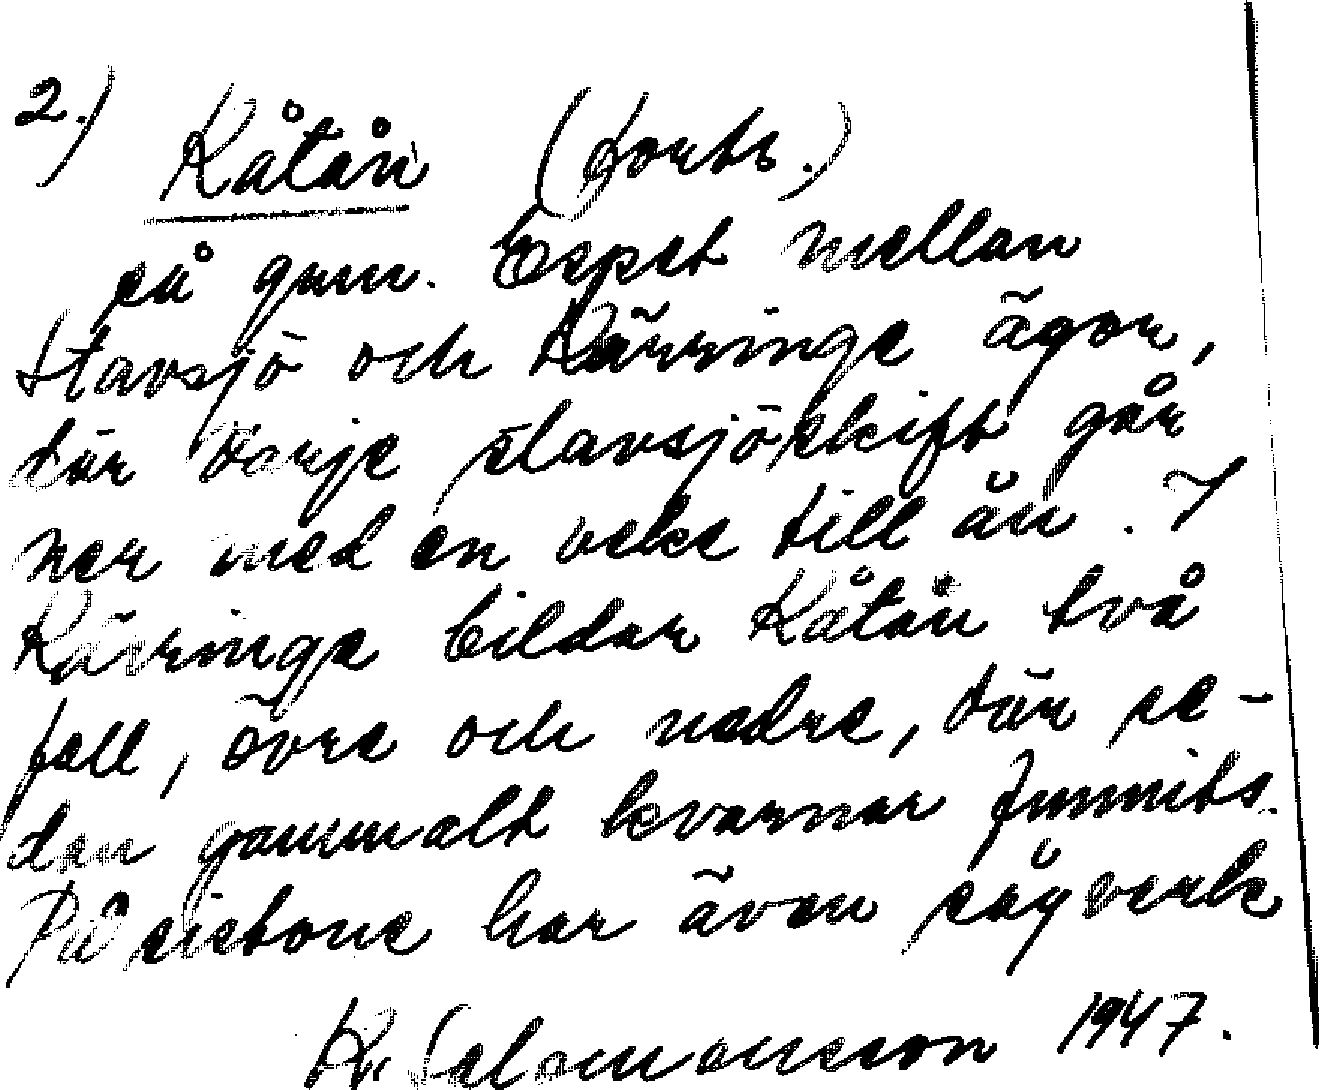 2.) Kåtån (forts.)
på grun. Espet mellan
Stavsjö och Kävringe ägor,
där varje stavsjöskift går
ner med en veke till ån. I
Kävringe bildar Kåtån två
fall, övre och nedre, där se-
dan gammalt kvarnar funnits.
På sistone har även sågverk
K. Salomonsson 1947.